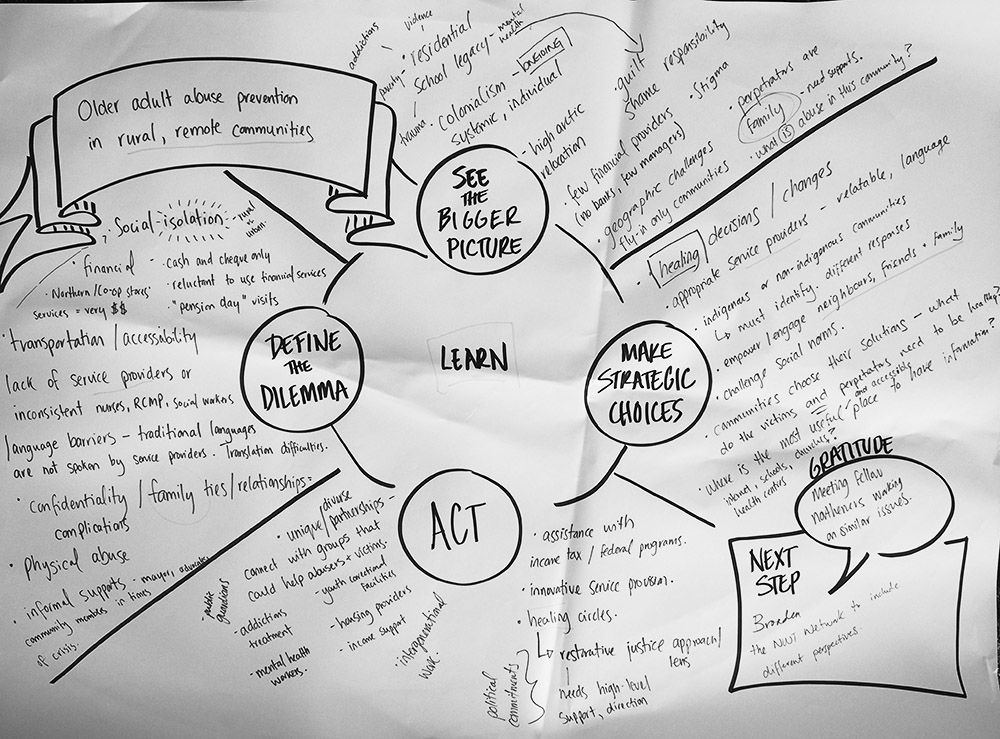 Older adult abuse prevention
in rural, remote communities
SEE
THE
BIGGER
PICTURE
addictions
violence
poverty
trauma
• residential
school legacy - mental
health
• colonialism - ONGOING
systemic, individual
• high arctic
relocation
• guilt
shame
responsibility
• stigma
• few financial providers
(no banks, few managers)
• geographic challenges
fly-in only communities
• perpetrators are
family - need supports.
• what is abuse in this community?
DEFINE
THE
DILEMMA
• Social-isolation - rural
vs
urban
• financial
• Northern/Co-op stores
services = very $$
- cash and cheque only
• reluctant to use financial services
• "pension day" visits
• transportation / accessability
lack of service providers or
inconsistent nurses, RCMP, social workers
language barriers - traditional languages
are not spoken by service providers. Translation difficulties.
• Confidentiality / family ties / relationships =
complications
• Physical abuse
• informal supports - mayor, advocates
community members in times
of crisis.
LEARN
MAKE
STRATEGIC
CHOICES
• healing decisions / changes
• appropriate service providers - relatable, language
• indigenous or non-indigenous communities
↳ must identify. different responses
• empower / engage neighbours, friends + family
• challenge social norms.
• communities choose their solutions - what
do the victims and perpetrators need to be healthy?
• where is the most useful and accessible place to have information?
internet, schools, churches?
health centres
ACT
• unique/diverse
partnerships -
connect with groups that
could help abusers + victims.
• public
guardians
• addictions
treatment
• mental health
workers.
- youth correctional
facilities
• housing providers
• income support
• intergenerational
work.
• assistance with
income tax / federal programs.
• innovative service provision.
• healing circles.
↳ restorative justice approach/
lens
needs high-level
support, direction
political
commitments
GRATITUDE
Meeting fellow
northerners working
on similar issues.
NEXT
STEP
Broaden
the NWT Network to include
different perspectives.